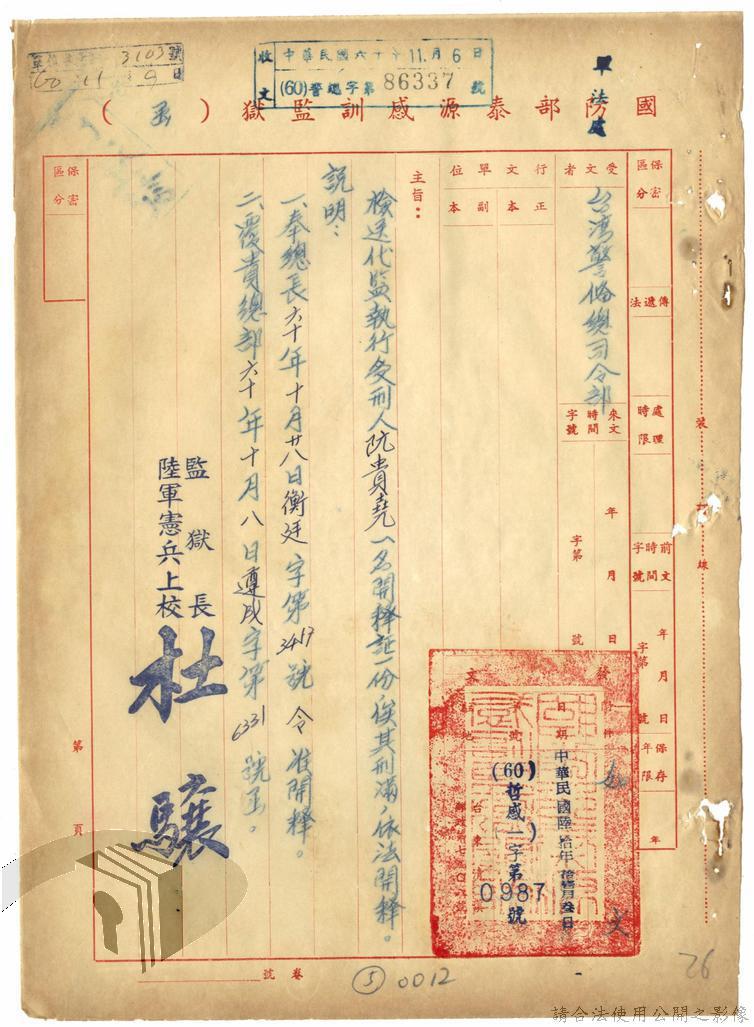 國防部泰源感訓監獄（函）
軍法處
收文
中華民國六十年11月6日
(60)警總字第86337號
3103號
保密區分
受文者
台湾警備總司令部
傳遞法
處理時限
來文時間字號
年月日
字第 號
前文時間字號
年月日
字第 號
保存年限
年
行文單位
正本
副本
保密區分
主旨：
檢送代監執行受刑人阮貴堯一名開釋証一份俟其刑滿，依法開釋。
說明：
一、奉總長六十年十月廿八日衡廷字第3417號令准開釋。
二、覆貴總部六十年十月八日遵戍字第6331號函。
監獄長
陸軍憲兵上校
杜驤
發文
附件
如文
日期
中華民國陸拾年拾壹月叁日
字號
(60)哲感(一)字第0987號
裝訂線
第 頁
卷號
5 0012
26
請合法使用公開之影像